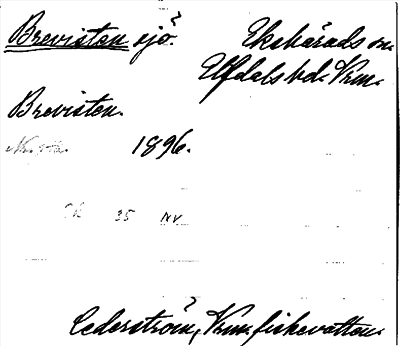 Brevisten sjö. Ekshärads sn.
Elfdals hd. Vrm.
Brevisten.
1896.
35 NV
Cederström, Vrm. fiskevatten.